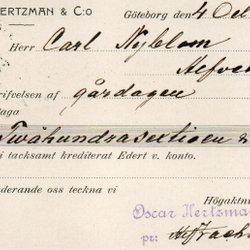 ERTZMAN & C:o Göteborg den 4 Oct
Herr Carl Nyblom
rifvelsen af gårdagen
taga
Twåhundrasextioen
i tacksamt krediterat Edert v. konto.
nderande oss teckna vi
Högaktn
Oscar Hertzma
pr: